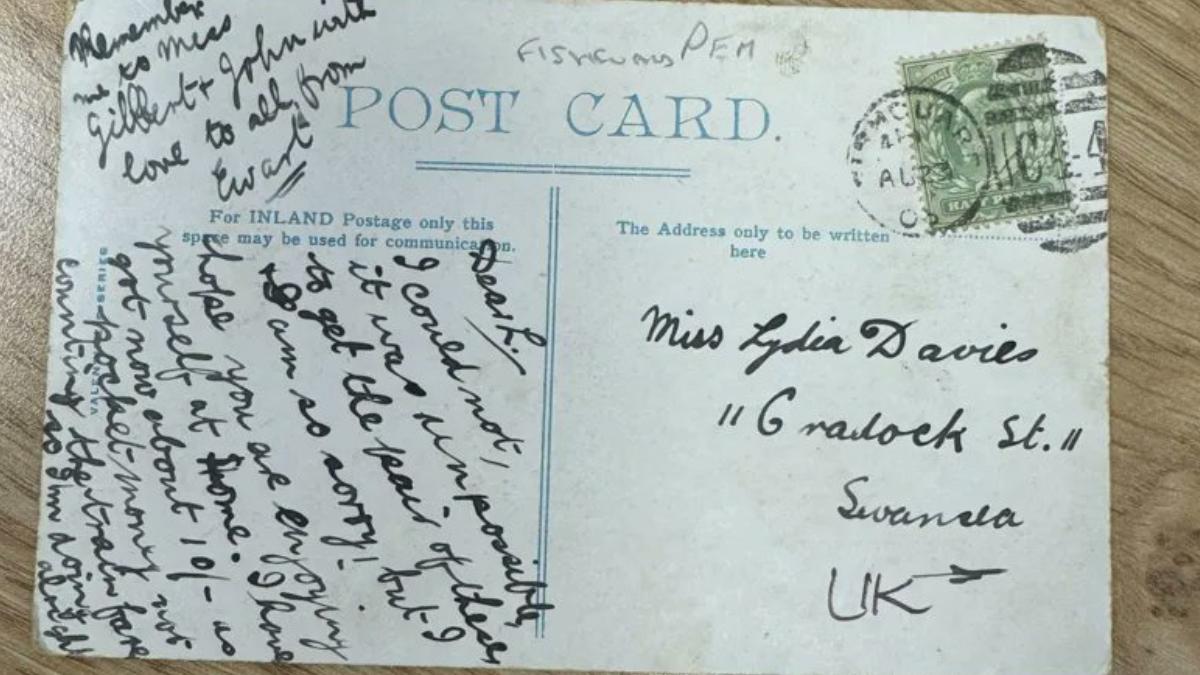 Remember
me to Miss
Gilbert + John with
love to all, from
Ewart
FISHGUARD PEM
POST CARD.
For INLAND Postage only this
space may be used for communication.
The Address only to be written
here
AU 23
03
C14
Dear L.
I could not,
it was unpossible,
to get the pair of these
but I
am so sorry!
hope you are enjoying
yourself at Home. I have
got now about 10/- as
pocket-money not
counting the train fare
so I'm doing alright
VALENTINES SERIES
Miss Lydia Davies
"Cradock St."
Swansea
UK